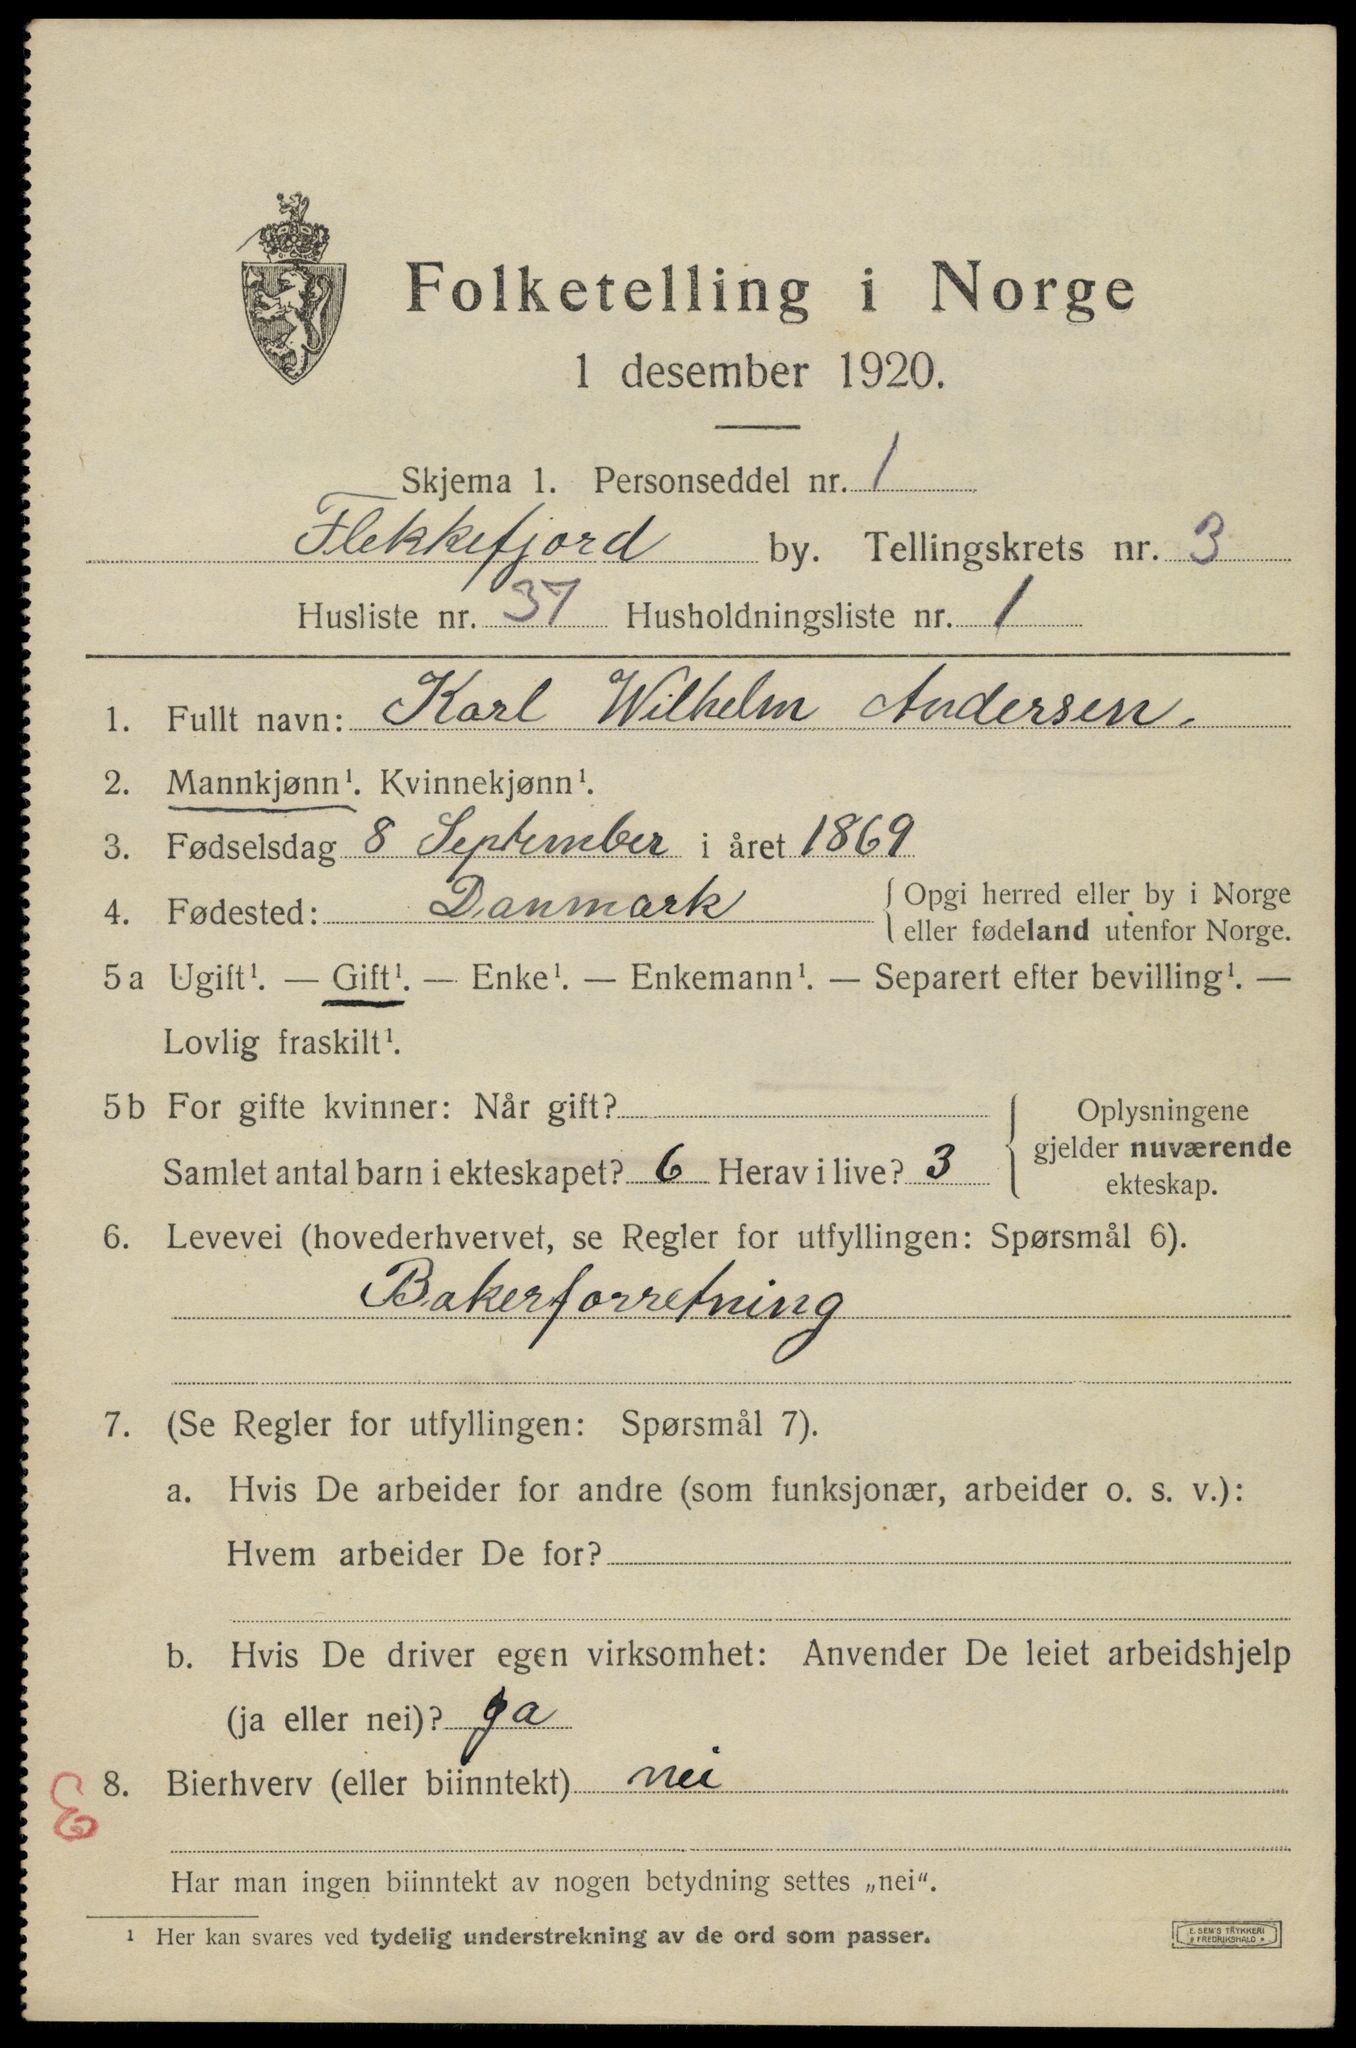 Folketelling i Norge
1 desember 1920.
Skjema 1. Personseddel nr. 1
Flekkefjord by. Tellingskrets nr. 3
Husliste nr. 37 Husholdningsliste nr. 1
1. Fullt navn: Karl Wilhelm Andersen.
2. Mannkjønn¹. Kvinnekjønn¹.
3. Fødselsdag 8 September i året 1869
4. Fødested: Danmark { Opgi herred eller by i Norge
eller fødeland utenfor Norge.
5a Ugift¹. — Gift¹. — Enke¹. — Enkemann¹. — Separert efter bevilling¹. —
Lovlig fraskilt¹.
5b For gifte kvinner: Når gift?
Samlet antal barn i ekteskapet? 6 Herav i live? 3
{ Oplysningene
gjelder nuværende
ekteskap.
6. Levevei (hovederhvervet, se Regler for utfyllingen: Spørsmål 6).
Bakerforretning
7. (Se Regler for utfyllingen: Spørsmål 7).
a. Hvis De arbeider for andre (som funksjonær, arbeider o. s. v.):
Hvem arbeider De for?
b. Hvis De driver egen virksomhet: Anvender De leiet arbeidshjelp
(ja eller nei)? ja
8. Bierhverv (eller biinntekt) nei
Har man ingen biinntekt av nogen betydning settes „nei“.
¹ Her kan svares ved tydelig understrekning av de ord som passer.
E. SEM'S TRYKKERI
FREDRIKSHALD